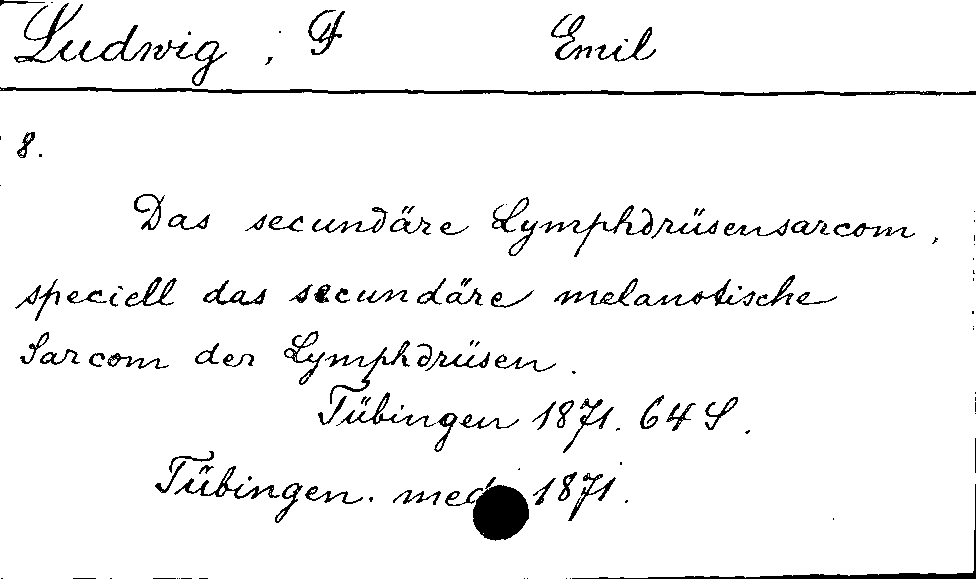 Ludwig, Emil
8.
Das secundäre Lymphdrüsensarcom,
speciell das secundäre melanotische
Sarcom der Lymphdrüsen.
Tübingen 1871. 64 S.
Tübingen. med. 1871.